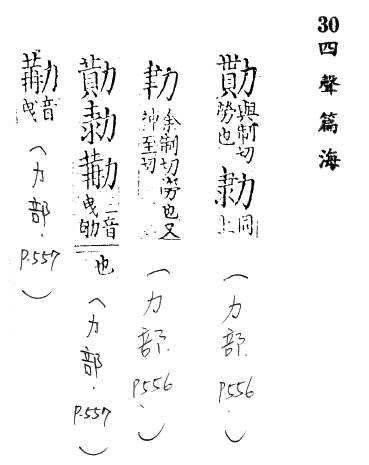 30 四聲篇海
勩 與制切勞也 同上 (力部.P.556)
余制切勞也又沖至切 (力部.P.556)
二音曳助也 (力部.P.557)
音曳 (力部.P.557)